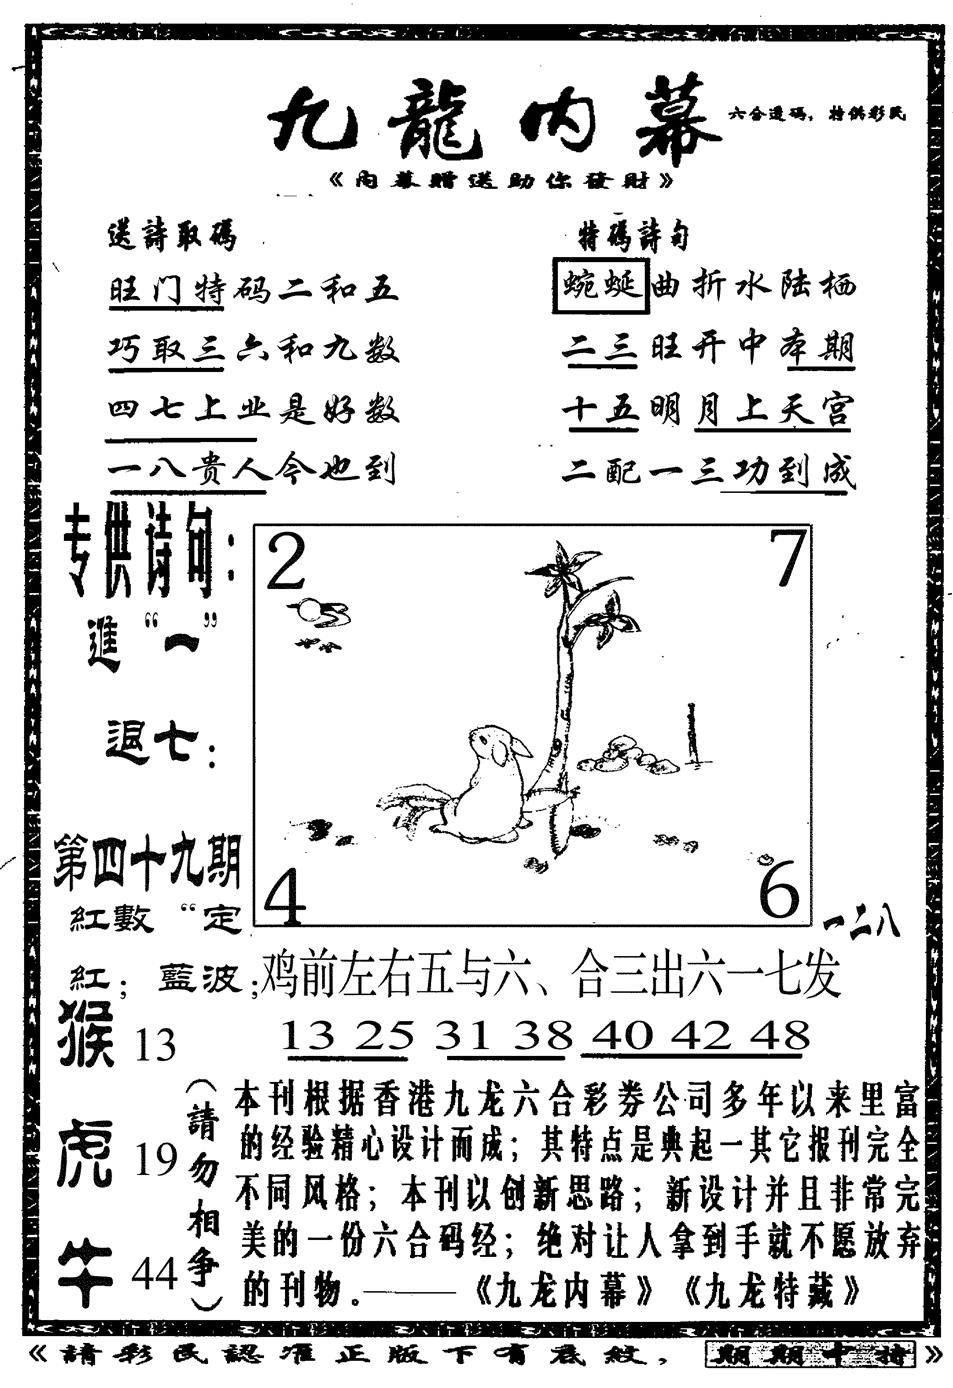 九龍内幕
六合透码，特供彩民
《内幕贈送助你發財》
送詩取碼
旺门特码二和五
巧取三六和九数
四七上业是好数
一八贵人今也到
特碼詩句
蜿蜒曲折水陆栖
二三旺开中本期
十五明月上天宫
二配一三功到成
专供诗句：
進“一”
退七：
第四十九期
紅數“定
紅；藍波；
2
7
4
6
一二八
鸡前左右五与六、合三出六一七发
13 25 31 38 40 42 48
猴 13
虎 19
牛 44
（請勿相争）
本刊根据香港九龙六合彩券公司多年以来里富
的经验精心设计而成；其特点是典起一其它报刊完全
不同风格；本刊以创新思路；新设计并且非常完
美的一份六合码经；绝对让人拿到手就不愿放弃
的刊物。———《九龙内幕》《九龙特藏》
《請彩民認准正版下有底紋，期期中特》